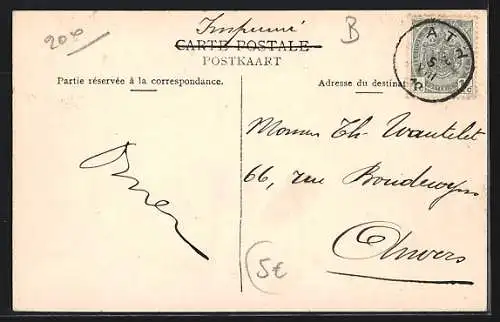 20 €
Imprimé
B
CARTE POSTALE
POSTKAART
ATH
Partie réservée à la correspondance.
Adresse du destinat
Monsieur Th. Wautelet
66, rue Boudewyns
Anvers
5€